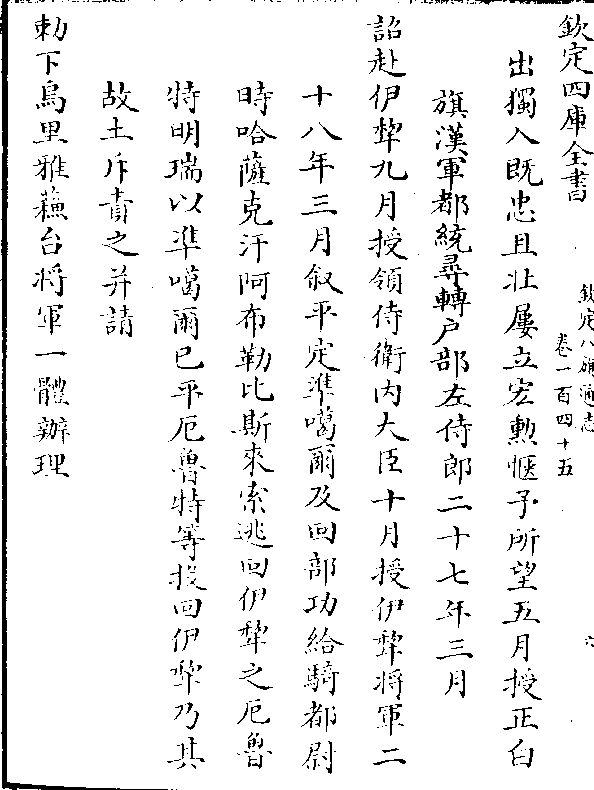 欽定四庫全書
欽定八旗通志
卷一百四十五
六
出獨入既忠且壯屢立宏勲愜予所望五月授正白
旗漢軍都統尋轉户部左侍郎二十七年三月
詔赴伊犂九月授領侍衛内大臣十月授伊犂將軍二
十八年三月叙平定準噶爾及回部功給騎都尉
時哈薩克汗阿布勒比斯來索逃回伊犂之厄魯
特明瑞以準噶爾已平厄魯特等投回伊犂乃其
故土斥責之并請
勅下烏里雅蘓台将軍一體辦理